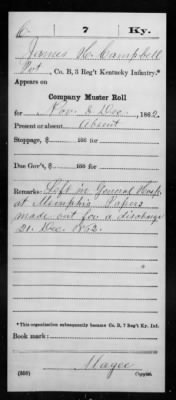 C | 7 | Ky.
James H. Campbell
Pvt, Co. B, 3 Reg't Kentucky Infantry.*
Appears on
Company Muster Roll
for Nov. & Dec., 1862.
Present or absent Absent
Stoppage, $ 100 for
Due Gov't, $ 100 for
Remarks: Left in General Hosp.
at Memphis. Papers
made out for a discharge
21. Dec. 1862.
*This organization subsequently became Co. B, 7 Reg't Ky. Inf.
Book mark:
Magee
(358) Copyist.